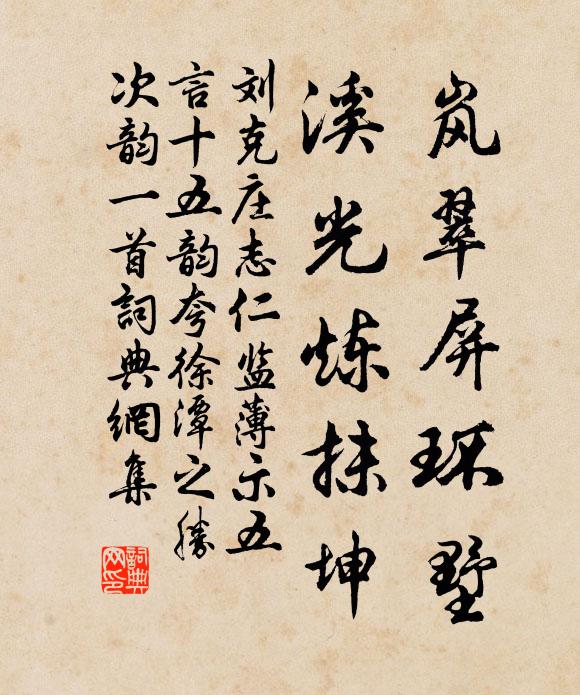 岚翠屏环墅
溪光炼抹坤
刘克庄志仁监薄示五
言十五韵夸徐潭之勝
次韵一首詞典網集
詞典网印